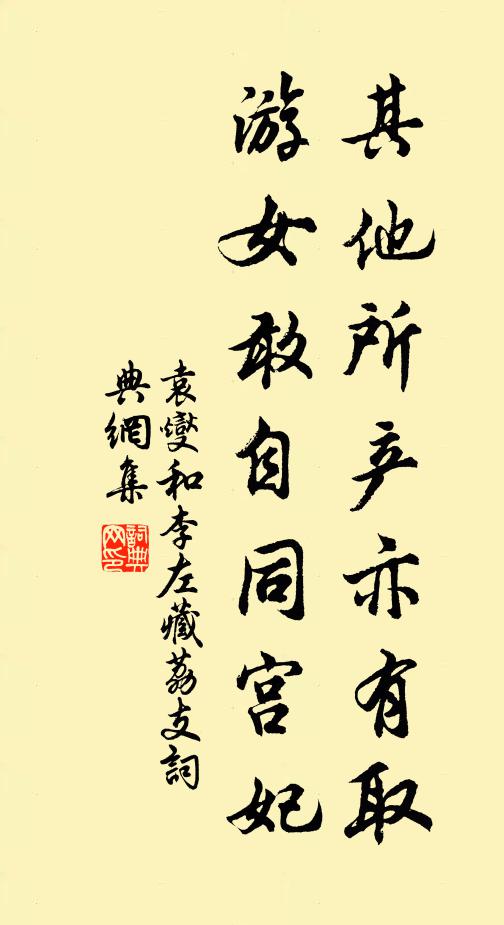 其他所产亦有取
游女敢自同宫妃
袁燮和李左藏荔支詞
典網集
詞典網印